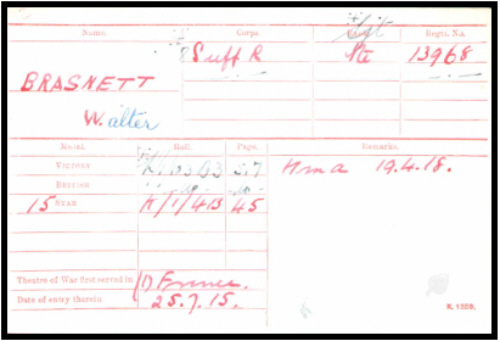 Name. Corps. Rank. Regtl. No.
8 Suff R Pte 13968
BRASNETT
Walter
Medal. Roll. Page. Remarks.
Victory
British
15 Star K/1/413 45
19.4.18.
Theatre of War first served in (1) France.
Date of entry therein 25.7.15.
K. 1380.